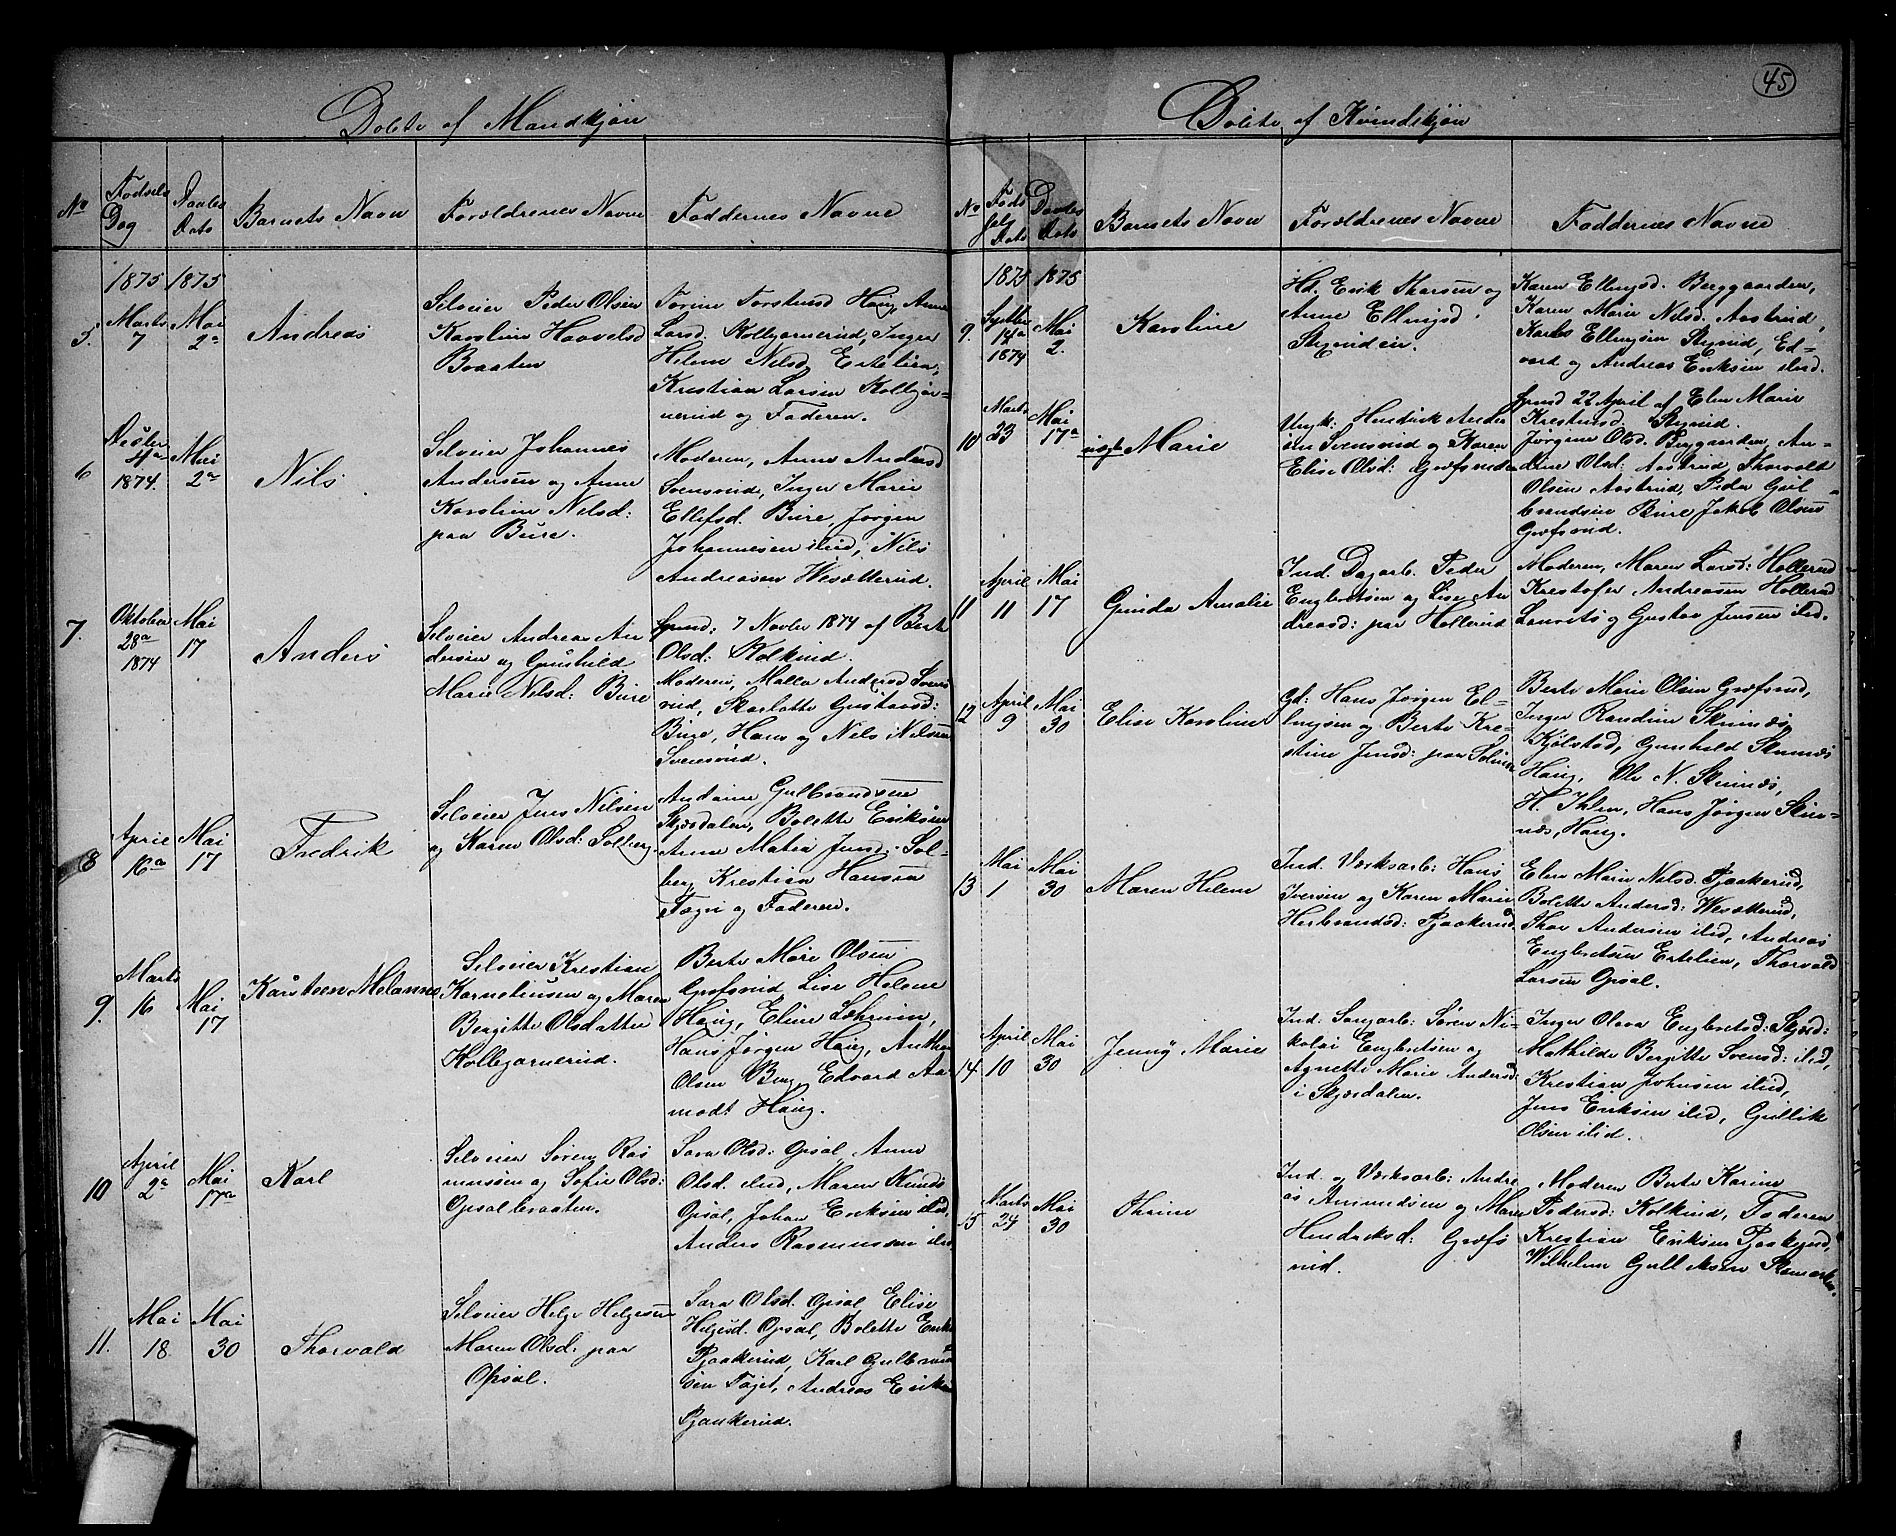 45
Døbte af Mandkjøn
No
Fødsels Dag
Daabs Dato
Barnets Navn
Forældrenes Navne
Faddernes Navne
1875 1875
5.
Marts 7
Mai 2a
Andreas
Selveier Peder Olsen
Karoline Haavelsd
Braaten
Larsd. Kolbjørnerud, Inger
Helene Nilsd Ertelien,
Kristian Larsen Kolbjør-
nerud og Faderen.
6
1874.
Mai 2a
Nils
Selveier Johannes
Andersen og Anne
Karoline Nilsd:
paa Bure.
Moderen, Anne Andersd
Svensrud, Inger Marie
Ellefsd. Bure, Jørgen
Johannesen ibid, Nils
Andreasen Wesætterud.
7.
Oktober 28a 1874
Mai 17
Anders
Selveier Andreas An
dersen og Gunhild
Marie Nilsd: Bure
7 Novbr 1874 af Berte
Olsd: Kolkind.
Moderen, Malla Andersd Svens
rud, Skarlotte Gustavsd:
Bure, Hans og Nils Nilssen
Svensrud.
8
April 16a
Mai 17
Fredrik
Selveier Jens Nilsen
og Karen Olsd: Solberg.
Gulbrandsen
Skjærdalen, Bolette Eriksen
Anne Matia Jensd. Sol-
berg, Kristian Hansen
og Faderen.
9.
Marts 16
Mai 17
Selveier Kristian
Karneliusen og Maren
Bergitte Olsdatter
Kolbjørnerud.
Berte Marie Olsen
Græfsrud Lise Helene
Haug, Eline
Hans Jørgen Haug, Anton
Olsen Berg, Edvard Aa-
modt Haug.
10
April 2a
Mai 17a
Karl
Selveier Søren Ras
mussen og Sofie Olsd:
Opsalbraaten.
Sara Olsd: Opsal, Anne
Olsd. ibid, Maren Knuds
Opsal, Johan Eriksen ibid.
Anders Rasmussen ibid
11.
Mai 18
Mai 30
Thorvald
Selveier Helge Helgesen
Maren Olsd: paa
Opsal.
Sara Olsd. Opsal Elise
Helgesd. Opsal, Bolette Eriks
Pjaakerud, Karl Gulbrand
sen Fajet, Andreas Eriksen
Pjaakerud.
Døbte af Kvindekjøn
No
Føds
Dato
Daabs Dato
Barnets Navn
Forældrenes Navne
Faddernes Navne
1875 1875
9.
1874
Mai 2.
Karoline
Erik Thorsen og
Anne Ellingsd.
Karen Ellingsd. Berggaarden,
Karen Marie Nilsd. Aastrud,
Karl Ellingsen Stynd, Ed-
vard og Andreas Eriksen ibid.
10
Marts 23
Mai 17a
Marie
Ungk: Hendrik Ander
sen Svensrud og Karen
Elise Olsd: Græfsrud
22 April af Elen Marie
Jørgine Olsd. Berggaarden, An-
dine Olsd: Aastrud, Thorvald
Olsen Aastrud, Peder Gul-
brandsen Bure Jakob Olsen
Græfsrud.
11
April 11
Mai 17
Gunda Amalie
Ind. Dagarb. Peder
Engbretsen og Lise An
dreasd: paa Hollerud
Moderen, Maren Larsd: Hollerud
Kristofer Andreasen Hollerud
Laurits og Gustav Jensen ibid.
12
April 9
Mai 30
Elise Karoline
Gd: Hans Jørgen El-
lingsen og Berte Kri-
stine Jensd: paa
Berte Marie Olsen Græfsrud,
Inger Randine Skinnæs
Kjølstad, Gunhild Skinnæs
Haug, Ole N. Skinnæs,
H. Ihlen, Hans Jørgen Skin-
næs, Haug.
13
Mai 1
Mai 30
Maren Helene
Ind. Værksarb: Hans
Iversen og Karen Marie
Herbrandsd: Pjaakerud
Elen Marie Nilsd. Pjaakerud,
Bolette Andersd: Wesætterud,
Thor Andersen ibid, Andreas
Engbretsen Ertelien, Thorvald
Larsen Opsal.
14
April 10
Mai 30
Jenny Marie
Ind: Saugarb: Søren Ni-
kolai Engbretsen og
Agnette Marie Andersd:
i Skjærdalen.
Inger Olava Engbretsd: Skjærd:
Mathilde Bergitte Svensd: ibid,
Kristian Johnsen ibid,
Jens Eriksen ibid, Gullik
Olsen ibid.
15
Marts 24
Mai 30
Thrine
Ind. og Værksarb: Andre
as Amundsen og Maren
Hendriksd: Græfs
rud.
Moderen Berte Karine
Pedersd: Kolkind, Faderen
Kristian Eriksen Pjaakerud,
Wilhelm Gulliksen